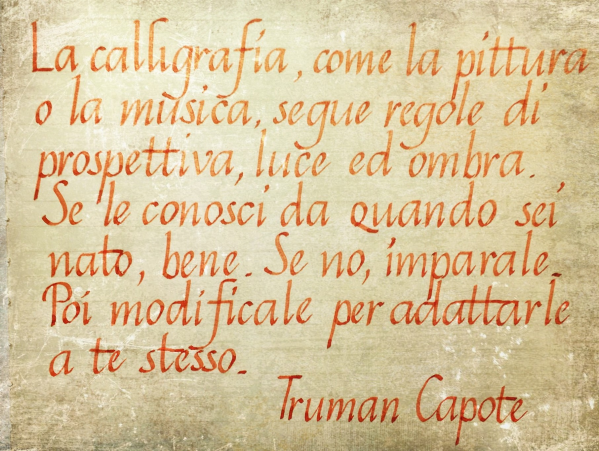 La calligrafia, come la pittura
o la musica, segue regole di
prospettiva, luce ed ombra.
Se le conosci da quando sei
nato, bene. Se no, imparale.
Poi modificale per adattarle
a te stesso.
Truman Capote